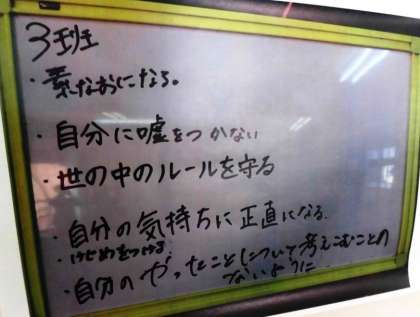 3班
・素なおになる。
・自分に嘘をつかない
・世の中のルールを守る
・自分の気持ちに正直になる。
・けじめをつける
・自分のやったことについて考えこむことの
ないように